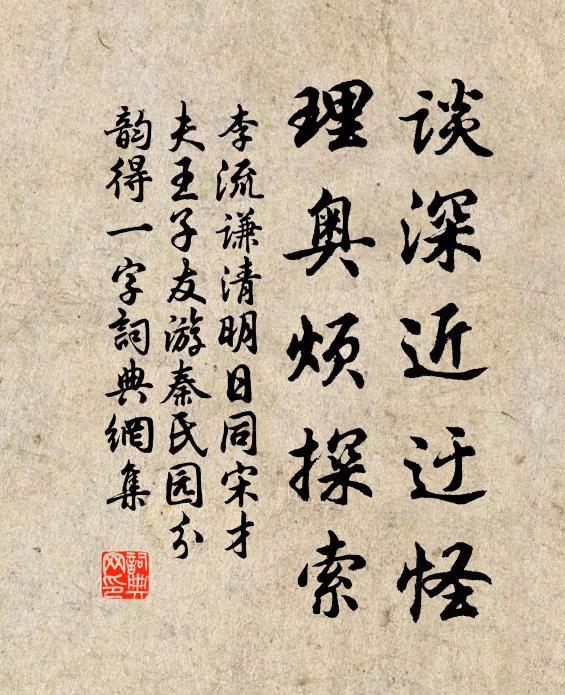 谈深近迂怪
理奥烦探索
李流谦清明日同宋才
夫王子友游秦氏园分
韵得一字詞典網集
詞典网印